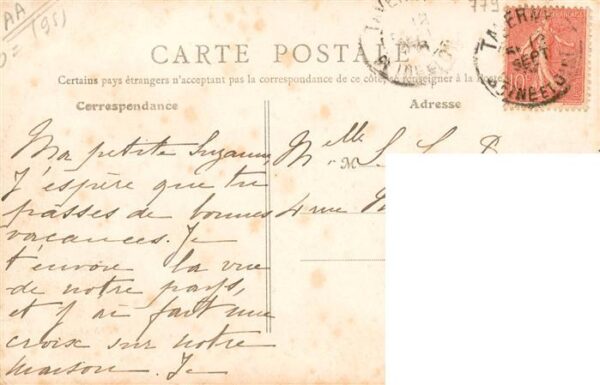 AA
(95)
779
CARTE POSTALE
Certains pays étrangers n'acceptant pas la correspondance de ce côté, se renseigner à la Poste
Correspondance
Adresse
Ma petite Suzanne
J'espère que tu
passes de bonnes
vacances. Je
t'envoie la vue
de notre pays,
et j'ai fait une
croix sur notre
maison. Je
Melle S
M
4 rue
TAVERNY
SEPT
SEINE ET OISE
TAVERNY
12
SEPT
SEINE ET OISE
10